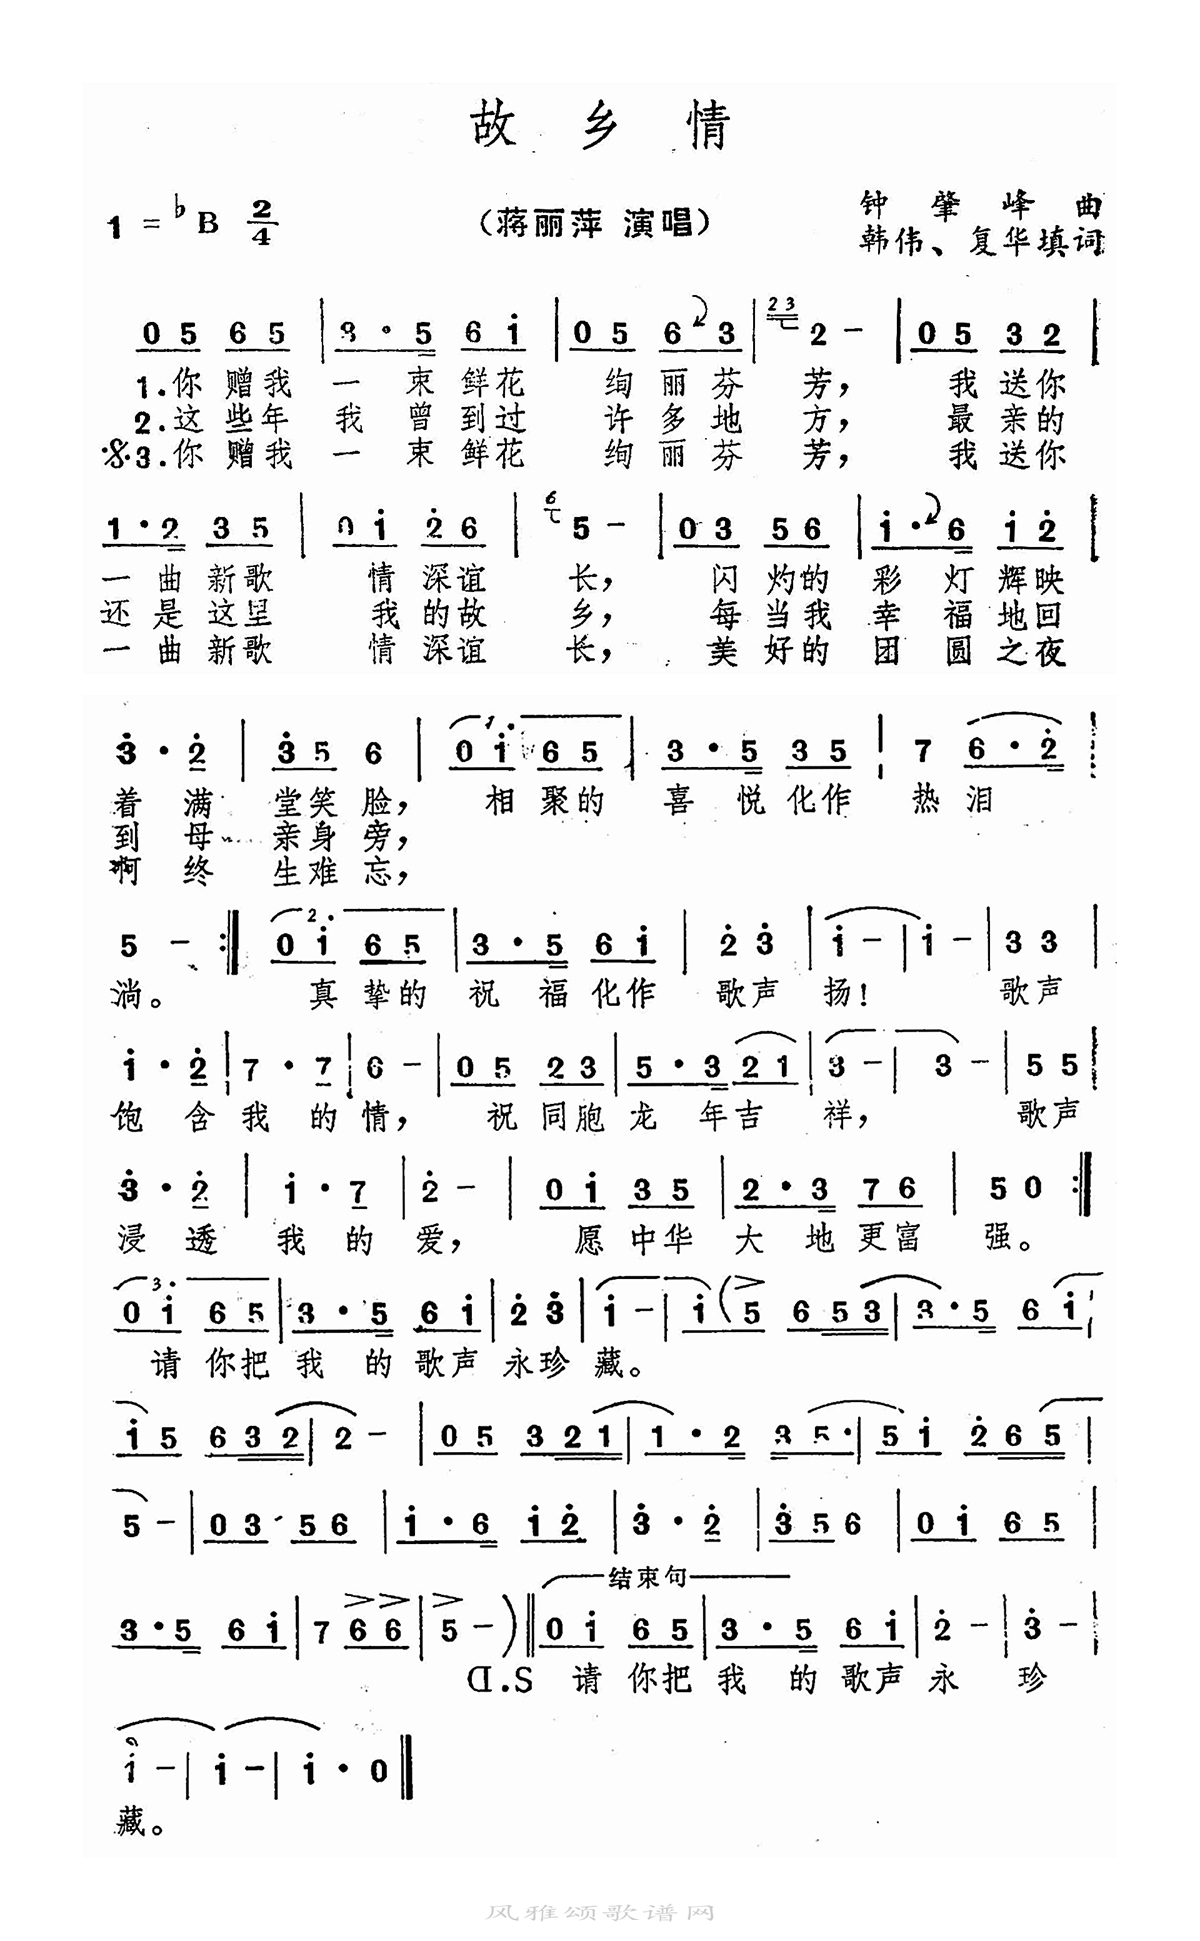 故乡情
1=♭B 2/4
（蒋丽萍 演唱）
钟肇峰曲
韩伟、复华填词
0 5 6 5 | 3 · 5 6 i | 0 5 6 3 | 23 2 - | 0 5 3 2 |
1.你赠我一束鲜花绚丽芬芳，我送你
2.这些年我曾到过许多地方，最亲的
3.你赠我一束鲜花绚丽芬芳，我送你
1 · 2 3 5 | 0 i 2 6 | 6 5 - | 0 3 5 6 | i · 6 i 2 |
一曲新歌情深谊长，闪灼的彩灯辉映
还是这里我的故乡，每当我幸福地回
一曲新歌情深谊长，美好的团圆之夜
3 · 2 | 3 5 6 | 1. 0 i 6 5 | 3 · 5 3 5 | 7 6 · 2 |
着满堂笑脸，相聚的喜悦化作热泪
到母亲身旁，
啊终生难忘，
5 - :‖ 2. 0 i 6 5 | 3 · 5 6 i | 2 3 | i - | i - | 3 3 |
淌。真挚的祝福化作歌声扬！歌声
i · 2 | 7 · 7 | 6 - | 0 5 2 3 | 5 · 3 2 1 | 3 - | 3 - | 5 5 |
饱含我的情，祝同胞龙年吉祥，歌声
3 · 2 | i · 7 | 2 - | 0 i 3 5 | 2 · 3 7 6 | 5 0 :‖
浸透我的爱，愿中华大地更富强。
3. 0 i 6 5 | 3 · 5 6 i | 2 3 | i - | i ( 5 6 5 3 | 3 · 5 6 i |
请你把我的歌声永珍藏。
i 5 6 3 2 | 2 - | 0 5 3 2 1 | 1 · 2 3 5 · | 5 i 2 6 5 |
5 - | 0 3 5 6 | i · 6 i 2 | 3 · 2 | 3 5 6 | 0 i 6 5 |
结束句
3 · 5 6 i | 7 6 6 | 5 - ) ‖ 0 i 6 5 | 3 · 5 6 i | 2 - | 3 - |
D.S 请你把我的歌声永珍
i - | i - | i · 0 ‖
藏。
风雅颂歌谱网